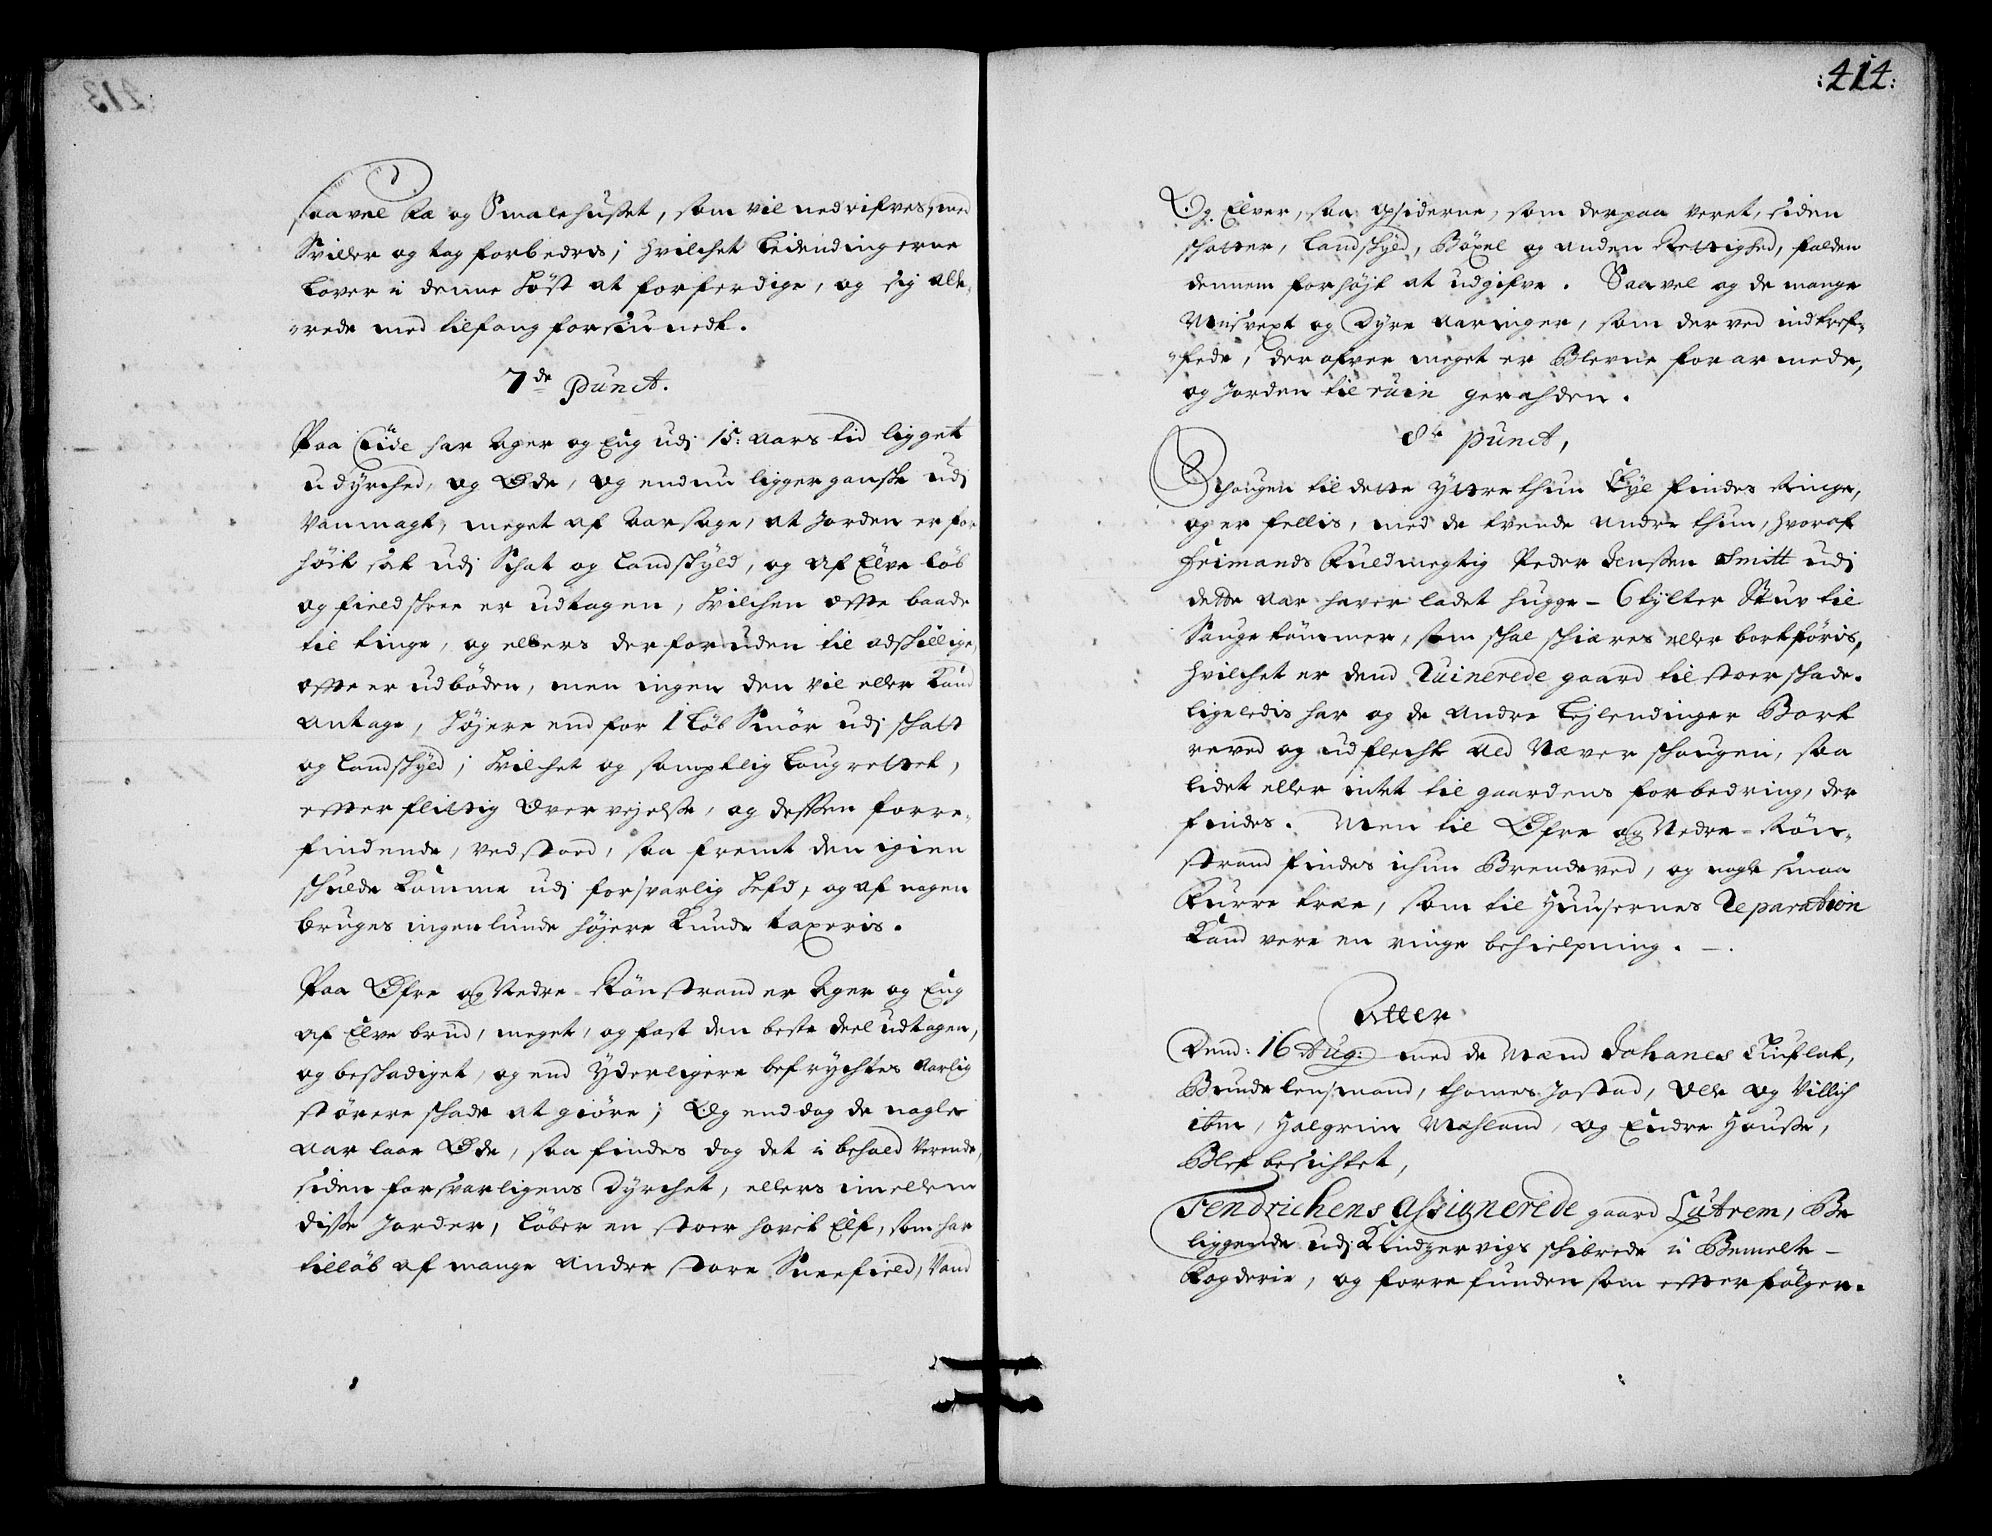 saavel Fæ og Smalehusset, som vil nedrifves, med
Sviller og tag forbedris; hvilchet Leilendingerne
Lover i denne Høst at forferdige, og sig alle-
rede med tilfang forsiunedt.
7de Punct.
Paa Eide har Ager og Eng udj 15: aars tid ligget
udyrched, og Øde, og endnu ligger gansche udj
Vanmagt, meget af aarsage, at Jorden er for
høit sat udj Schat og Landschyld, og af Elve Løb
og fieldschree er udtagen, hvilchen offte baade
til tinge, og ellers derforuden til adschillige,
offte er udbøden, men ingen den vil eller Kand
antage, højere end for 1 Løb Smør udj schatt
og Landschyld; hvilchet og samptlig Laugrettet,
effter flittig Overvejelse, og dessen forre-
findende, vedstoed, saa fremt den igien
schulde Komme udj forsvarlig hefd, og af nogen
bruges ingenlunde højere Kunde taxeris.
Paa Øfre og Nedre-Rønstrand er Ager og Eng
af Elve brud, meget, og fast den beste deel udtagen,
og beschadiget, og end Yderligere befrychtes aarlig
større schade at giøre; Og enddog de nogle
aar laae Øde, saa findes dog det i behold verende,
siden forsvarligens Dyrchet, ellers imellem
disse Jorder, Løber en stoer hovit Elf, som har
tilløb af mange andre store Sneefield, Vand
:414:
Og Elver, saa opsiderne, som derpaa veret, siden
schatter, Landschyld, Böxel og anden Rettighed, falden
dennem forhøjt at udgifve. Saavel og de mange
Misvext og Dyre aaringer, som derved indtref-
fede, der ofver meget er Blevne forarmede,
og Jorden til ruin gerahden.
8de Punct,
Schougen til dette Yttrethun Eye findes Ringe,
og er fellis, med de tvende andre thun, hvoraf
Heimands Fuldmegtig Peder Jenssen Smitt udj
dette aar haver ladet hugge - 6 tylter Stuv til
Saugetømmer, som schal schiæres eller bortføris,
hvilchet er dend Ruinerede gaard til stoer schade.
ligeledis har og de andre Lejlendinger Bort
reved og udflecht ald Næver schougen, saa
lidet eller intet til gaardens forbedring, der
findes. Men til Øfre og Nedre-Røn-
strand findes ichun Brendeved, og nogle smaa
Furre træe, som til Huusernes Reparation
Kand vere en ringe behielpning.
Atter
Dend: 16 Aug: med de Mænd Johanes
Bunde lensmand, thomes Jostad, Olle og Villich
ibm, Halgrim Mæhland, og Endre Housse,
Blef besichtet,
Fendrichens Assignerede gaard Lutrem, Be
liggende udj Kindzervigs schibrede i Bemelte -
Fogderie, og forrefunden som effterfølger.